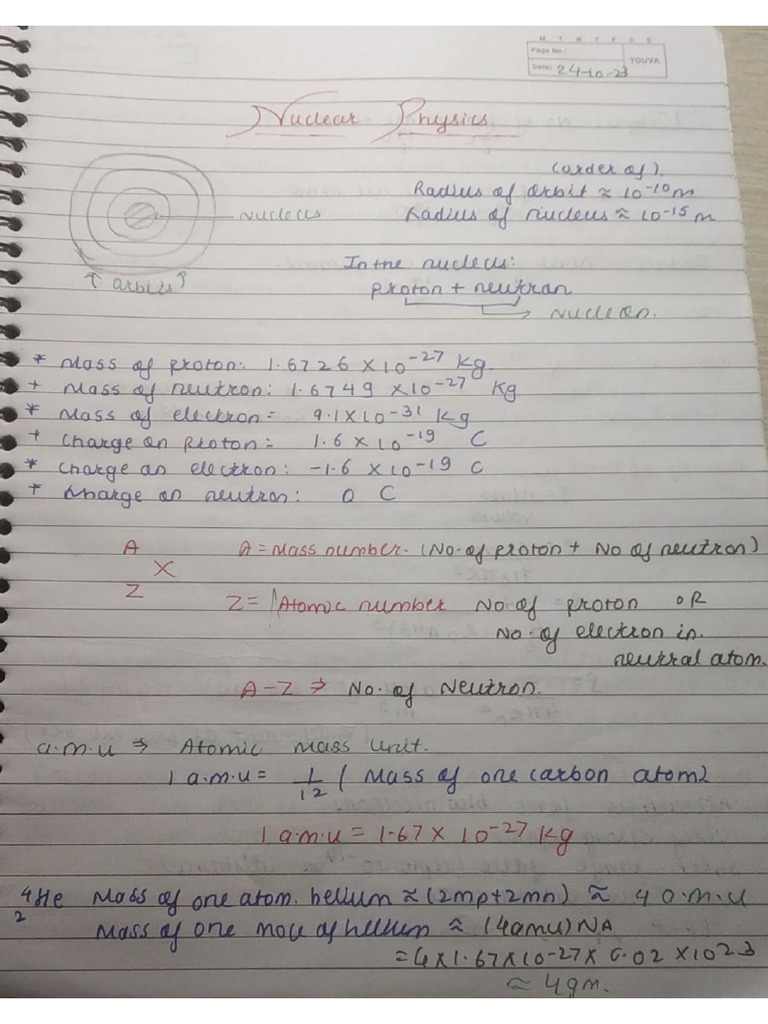 M T W T F S S
Page No.:
YOUVA
Date: 24-10-23
Nuclear Physics
(order of).
Radius of orbit ≈ 10⁻¹⁰m
Radius of nucleus ≈ 10⁻¹⁵m
Nucleus
↑ orbits ↑
In the nucleus:
proton + neutron
→ Nucleon.
* Mass of proton: 1.6726 × 10⁻²⁷ Kg
+ Mass of neutron: 1.6749 × 10⁻²⁷ Kg
* Mass of electron = 9.1 × 10⁻³¹ Kg
+ Charge on proton = 1.6 × 10⁻¹⁹ C
* Charge on electron: -1.6 × 10⁻¹⁹ C
* Charge on neutron: 0 C
A
X
Z
A = Mass number. (No. of proton + No of neutron)
Z = Atomic number No. of proton OR
No. of electron in.
neutral atom.
A-Z ⇒ No. of Neutron.
a.m.u ⇒ Atomic Mass Unit.
1 a.m.u = 1/12 ( Mass of one carbon atom)
1 a.m.u = 1.67 × 10⁻²⁷ Kg
⁴₂He Mass of one atom. helium ≈ (2mp+2mn) ≈ 4 a.m.u
Mass of one mole of helium ≈ (4amu) NA
= 4 × 1.67 × 10-27 × 6.02 × 1023
≈ 4gm.